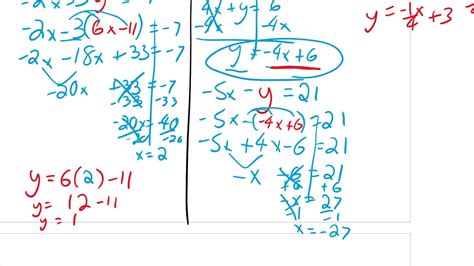 -2x-3(6x-11)=-7
-2x-18x+33=-7
-20x +33=-7
-33 -33
-20x=40
-20 -20
x=2
y=6(2)-11
y=12-11
y=1
4x+y=6
-4x -4x
y=-4x+6
-5x-y=21
-5x-(-4x+6)=21
-5x+4x-6=21
-x -6=21
+6 +6
-x=27
-1 -1
x=-27
y=-1x/4+3